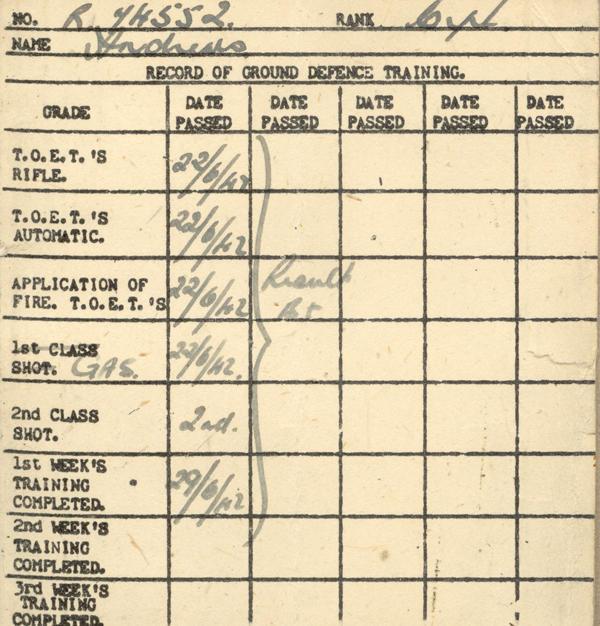 NO. R.74552. RANK Cpl
NAME Andrews
RECORD OF GROUND DEFENCE TRAINING.
GRADE DATE PASSED DATE PASSED DATE PASSED DATE PASSED DATE PASSED
T.O.E.T.'S RIFLE. 22/6/42
T.O.E.T.'S AUTOMATIC. 22/6/42
APPLICATION OF FIRE. T.O.E.T.'S 22/6/42
Result
1st CLASS SHOT. GAS. 22/6/42.
2nd CLASS SHOT. 2nd.
1st WEEK'S TRAINING COMPLETED. 29/6/42
2nd WEEK'S TRAINING COMPLETED.
3rd WEEK'S TRAINING COMPLETED.